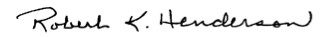 Robert K. Henderson